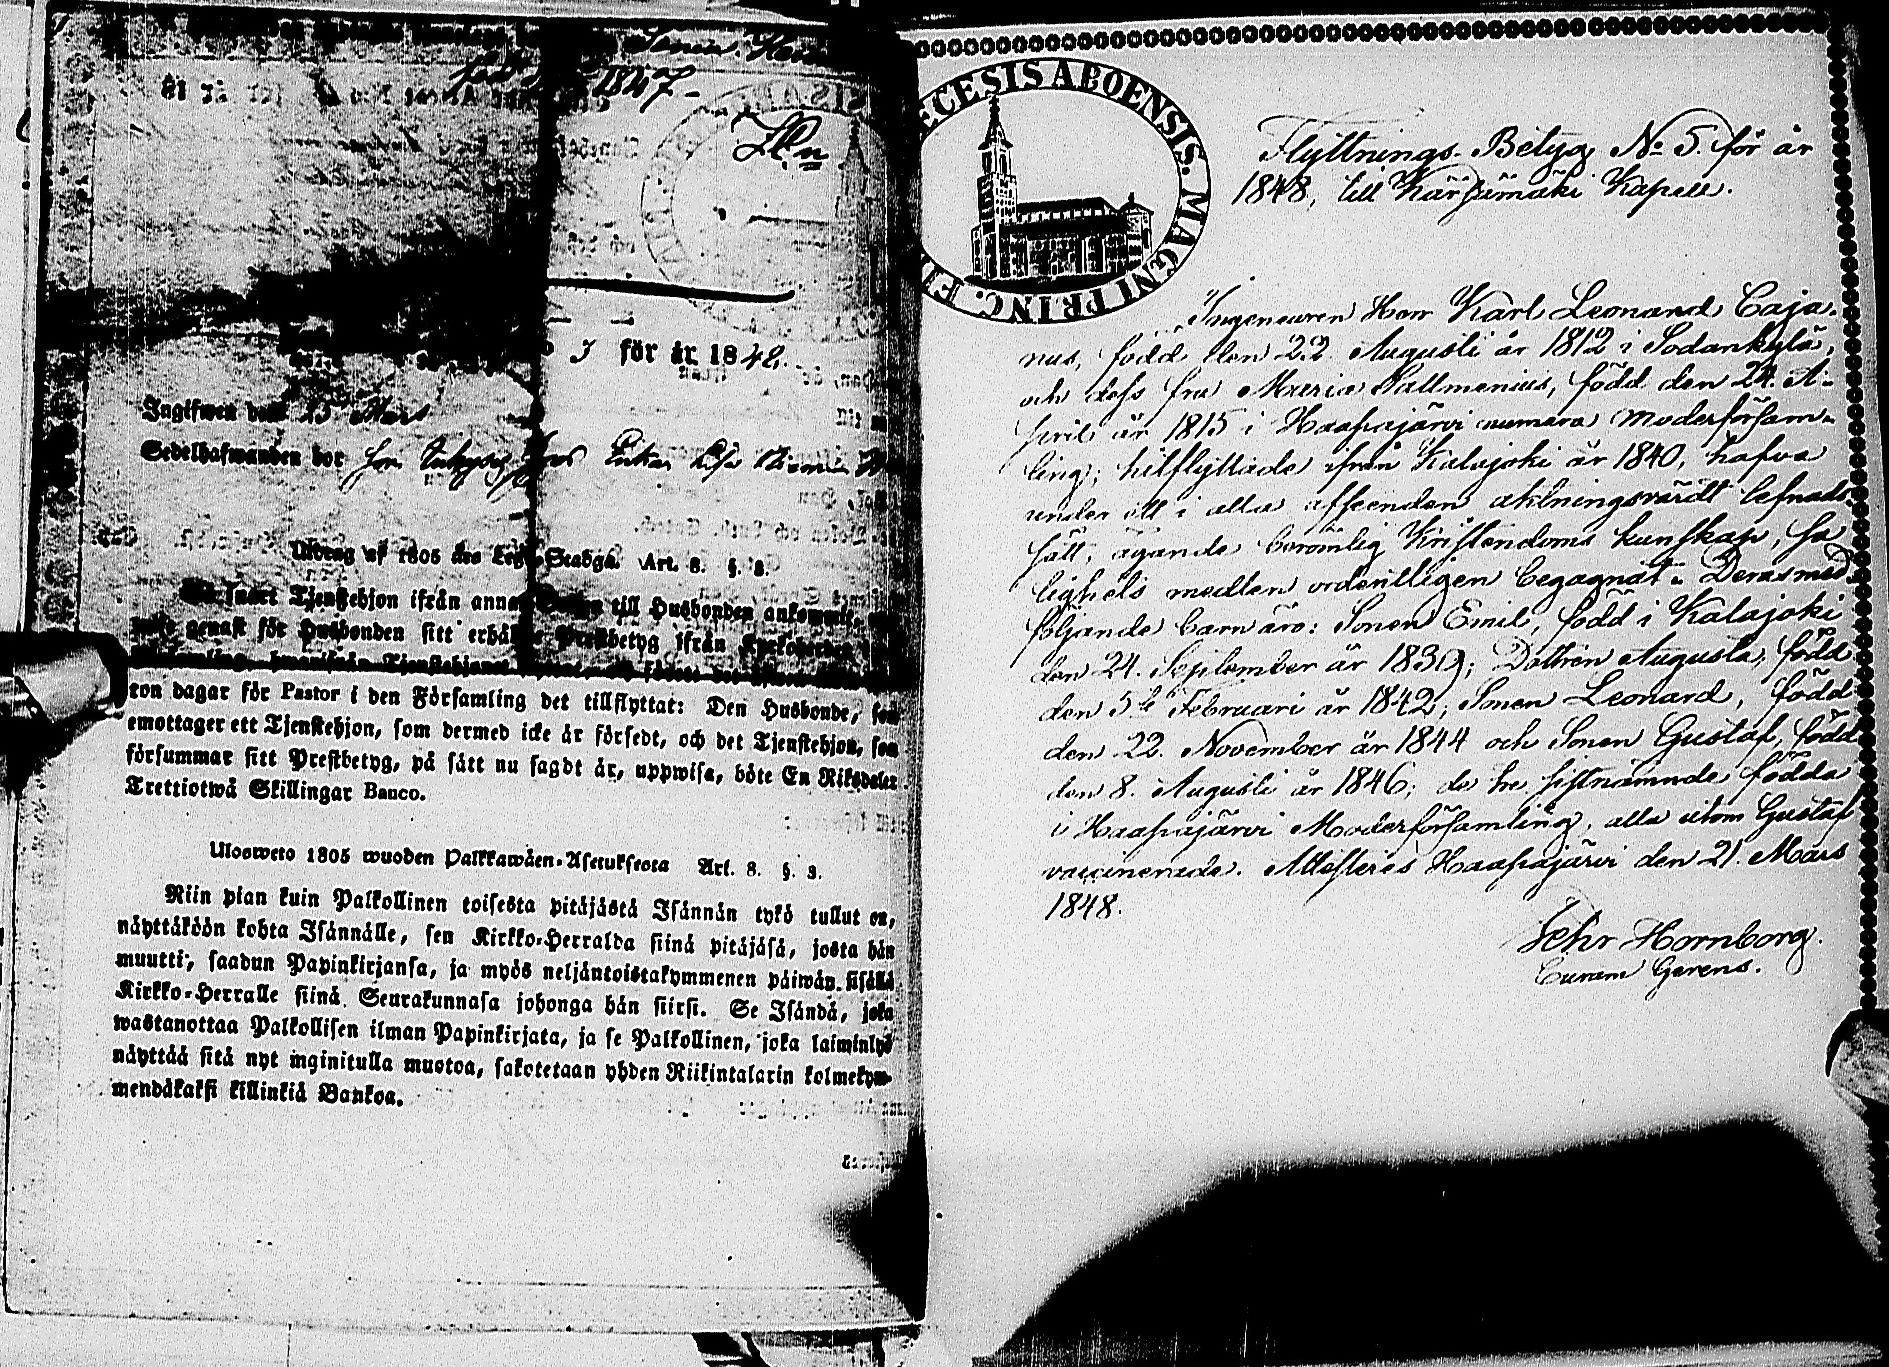 Sonen Her
1847
för år 1848.
Ingifwen den 15 Mars
Sedelhafwanden bor hos
Utdrag af 1805 års Lego-Stadga. Art. 8. §. 8.
Så snart Tjenstehjon ifrån annan till Husbonden ankommit,
genast för Husbonden sitt Prestbetyg ifrån Kyrkoherden
ton dagar för Pastor i den Församling det tillflyttat: Den Husbonde, som
emottager ett Tjenstehjon, som dermed icke är försedt, och det Tjenstehjon, som
försummar sitt Prestbetyg, på sätt nu sagdt är, uppwisa, böte En Riksdaler
Trettiotwå Skillingar Banco.
Ulosweto 1805 wuoden Palkkawäen-Asetuksesta Art. 8. §. 3.
Niin pian kuin Palkollinen toisesta pitäjästä Isännän tykö tullut on,
näyttäköön kohta Isännälle, sen Kirkko-Herralda siinä pitäjäsä, josta hän
muutti, saadun Papinkirjansa, ja myös neljäntoistakymmenen päiwän sisällä
Kirkko-Herralle siinä Seurakunnasa johonga hän siirsi. Se Isändä, joka
wastanottaa Palkollisen ilman Papinkirjata, ja se Palkollinen, joka laiminlyö
näyttää sitä nyt inginitulla muotoa, sakotetaan yhden Riikintalarin kolmekym-
mendäkaksi killinkiä Bankoa.
ECESIS ABOENSIS. MAGNI PRINC.
Flyttnings-Betyg No 5. för år
1848, till Kärsämäki Kapell.
Ingeneuren Herr Karl Leonard Caja-
nus, född den 22 Augusti år 1812 i Sodankylä,
och dess fru Maria Sallmenius, född den 24. A-
pril år 1815 i Haapajärvi numera moderförsam-
ling; hitflyttade ifrån Kalajoki år 1840, hafva
under ett i alla afseenden aktningsvärdt lefnads-
sätt, ägande berömlig Kristendoms kunskap, sa-
lighets medlen ordentligen begagnat. Deras med-
följande barn äro: Sonen Emil, född i Kalajoki
den 24. September år 1839; Dottren Augusta, född
den 5te Februari år 1842; Sonen Leonard, född
den 22. November år 1844 och Sonen Gustaf, född
den 8. Augusti år 1846; de tre sistnämnde födda
i Haapajärvi Moderförsamling, alla utom Gustaf
vaccinerade. Attesteras Haapajärvi den 21. Mars
1848.
Fehr Hornborg.
Curam Gerens.